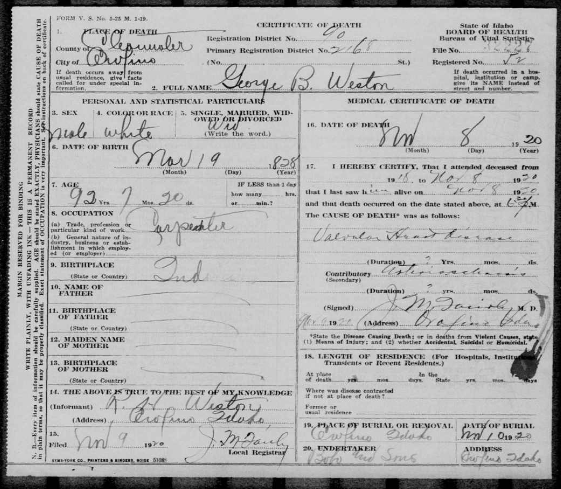 FORM V. S. No. 5-25 M. 1-19.
CERTIFICATE OF DEATH
State of Idaho
BOARD OF HEALTH
Bureau of Vital Statistics
1. PLACE OF DEATH
County of Clearwater
City of Orofino
Registration District No. 90
Primary Registration District No. 2168
(No. St.)
File No.
Registered No. 52
If death occurs away from usual residence, give facts called for under special information.
2. FULL NAME George B. Weston
If death occurred in a hospital, institution or camp, give its NAME instead of street and number.
PERSONAL AND STATISTICAL PARTICULARS
3. SEX Male
4. COLOR OR RACE White
5. SINGLE, MARRIED, WIDOWED OR DIVORCED Wid
(Write the word.)
6. DATE OF BIRTH
Mar 19 1828
(Month) (Day) (Year)
7. AGE
92 Yrs. 7 Mos. 20 ds.
IF LESS than 1 day how many hrs. or min.?
8. OCCUPATION
(a) Trade, profession or particular kind of work Carpenter
(b) General nature of industry, business or establishment in which employed (or employer)
9. BIRTHPLACE
(State or Country) Ind
10. NAME OF FATHER
11. BIRTHPLACE OF FATHER
(State or Country)
12. MAIDEN NAME OF MOTHER
13. BIRTHPLACE OF MOTHER
(State or Country)
14. THE ABOVE IS TRUE TO THE BEST OF MY KNOWLEDGE
(Informant) Weston
(Address) Orofino Idaho
15.
Filed Nov 9 1920 J. M. Fairly
Local Registrar
SYMS-YORK CO., PRINTERS & BINDERS, BOISE
MEDICAL CERTIFICATE OF DEATH
16. DATE OF DEATH
Nov 8 1920
(Month) (Day) (Year)
17. I HEREBY CERTIFY, That I attended deceased from
1918 to Nov 8 1920
that I last saw him alive on Nov 8 1920
and that death occurred on the date stated above, at M.
The CAUSE OF DEATH* was as follows:
Valvular Heart disease
(Duration) ? Yrs. Mos. ds.
Contributory Arteriosclerosis
(Secondary)
(Duration) ? Yrs. Mos. ds.
(Signed) J. M. Fairly M. D.
1920 (Address) Orofino Idaho
*State the Disease Causing Death; or in deaths from Violent Causes, state (1) Means of Injury; and (2) whether Accidental, Suicidal or Homicidal.
18. LENGTH OF RESIDENCE (For Hospitals, Institutions, Transients or Recent Residents.)
At place of death yrs. mos. days. In the State yrs. mos. days
Where was disease contracted if not at place of death?
Former or usual residence
19. PLACE OF BURIAL OR REMOVAL
Orofino Idaho
DATE OF BURIAL
Nov 10 1920
20. UNDERTAKER
and Sons
ADDRESS
Orofino Idaho
MARGIN RESERVED FOR BINDING
WRITE PLAINLY, WITH UNFADING INK—THIS IS A PERMANENT RECORD